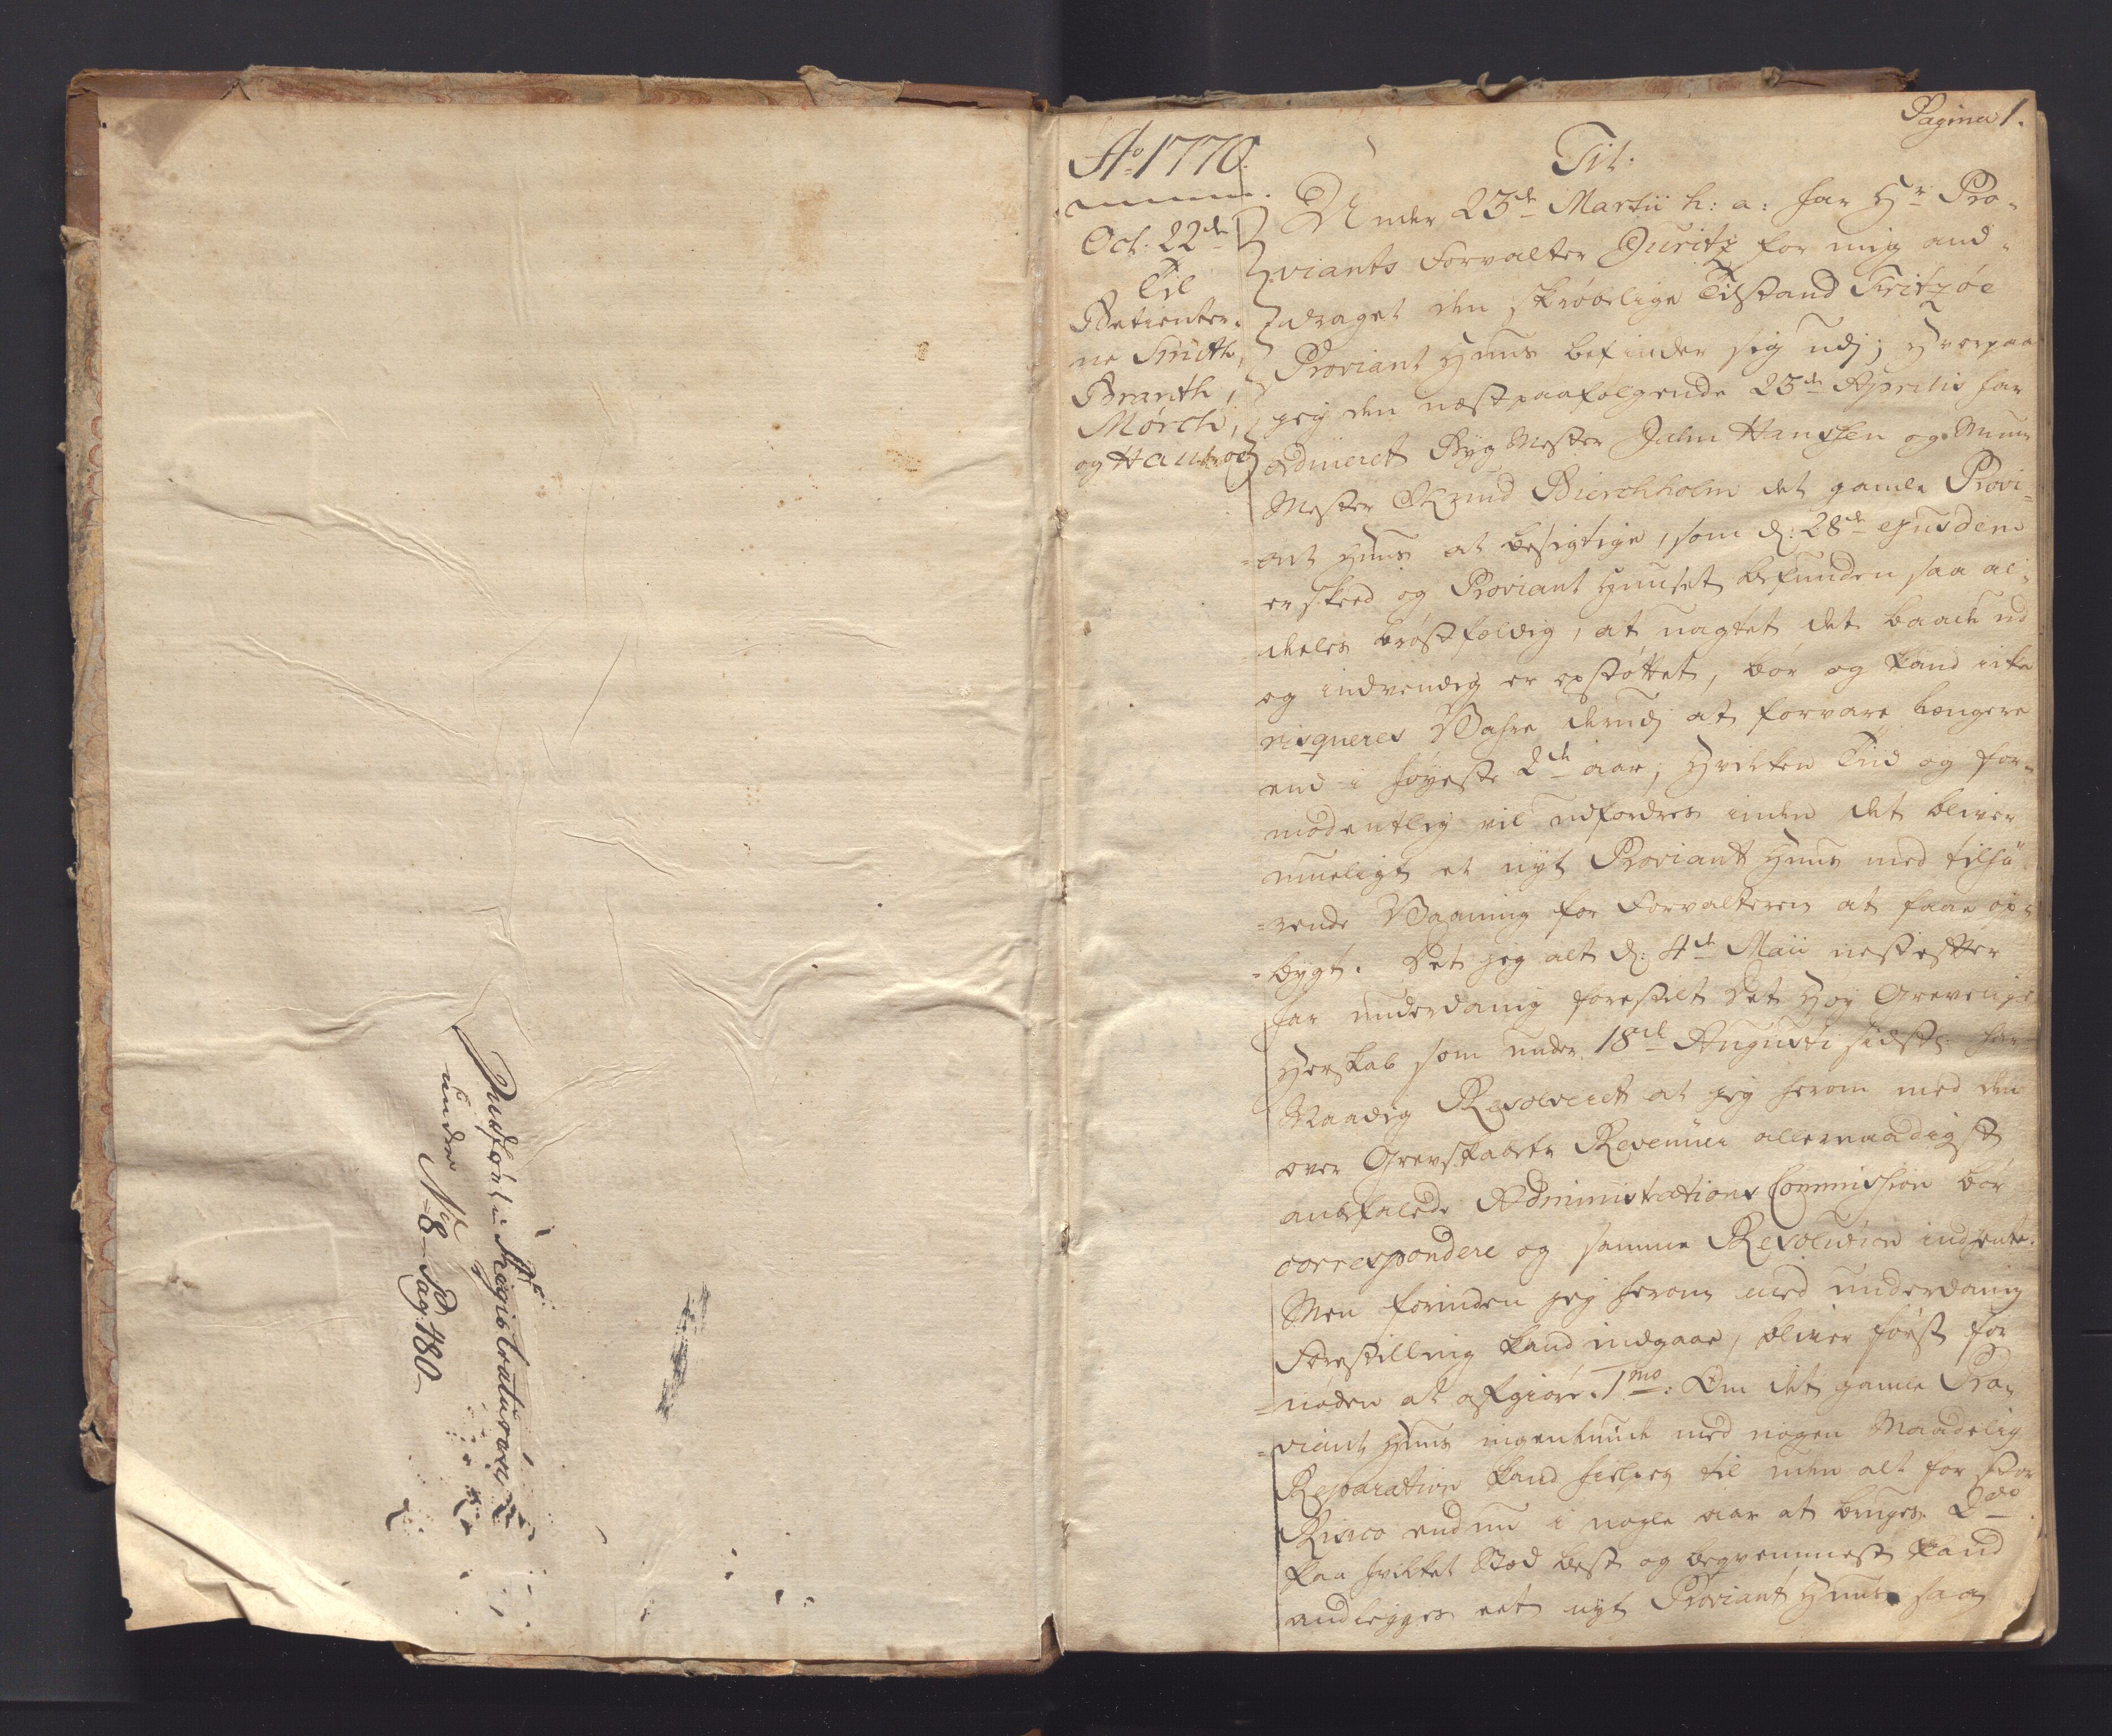 Indført i Registraturen
under No 8 Pag: 180
Pagina 1.
Ao 1770.
Oct: 22de
Til
Betienter-
ne Smith,
Branth,
Mørch,
og Hauhoe
Tit.
Under 23de Martii h: a: har Hr Pro-
viants Forvalter Juritz for mig and-
draget den skrøbelige Tilstand Fritzøe
Proviant Huus befinder sig udj; Hvorpaa
jeg den næstpaafølgende 23de Aprilis har
ordineret Byg Mester Juhn Hansten og Muur
Mester Amund Bierchholm det gamle Provi-
ant Huus at besigtige, som d: 28de ejusdem
er skeed og Proviant Huuset befunden saa al-
deeles brøstfældig, at uagtet det baade ud
og indvendig er opstøttet, bør og kand icke
risqueres Vahre derudj at forvare længere
end i høyeste 2de aar; Hvilken Tiid og for-
modentlig vil udfordres inden det bliver
mueligt et nyt Proviant Huus med tilhø-
=rende Vaaning for Forvalteren at faae op-
=bygt. Det jeg alt d: 4de Maii nestefter
har underdanig forestilt Det Høy Grevelige
Herskab som under 18de Augusti sidstl: har
Naadig Resolveret at jeg herom med den
over Grevskabets Revenüer allernaadigst
anbefalede Administrations Commission bør
correspondere og samme Resolution indhente.
Men forinden jeg herom med underdanig
Forestilling kand indgaae, bliver først for
=nøden at afgiøre. 1mo: Om det gamle Pro-
=viant Huus ingenlunde med nogen Maadelig
Reparation kand hielpes til uden alt for stor
Risico endnu i nogle aar at bruges. 2do
Paa hvilket Stæd best og beqvemmest kand
andlegges eet nyt Proviant Huus saa